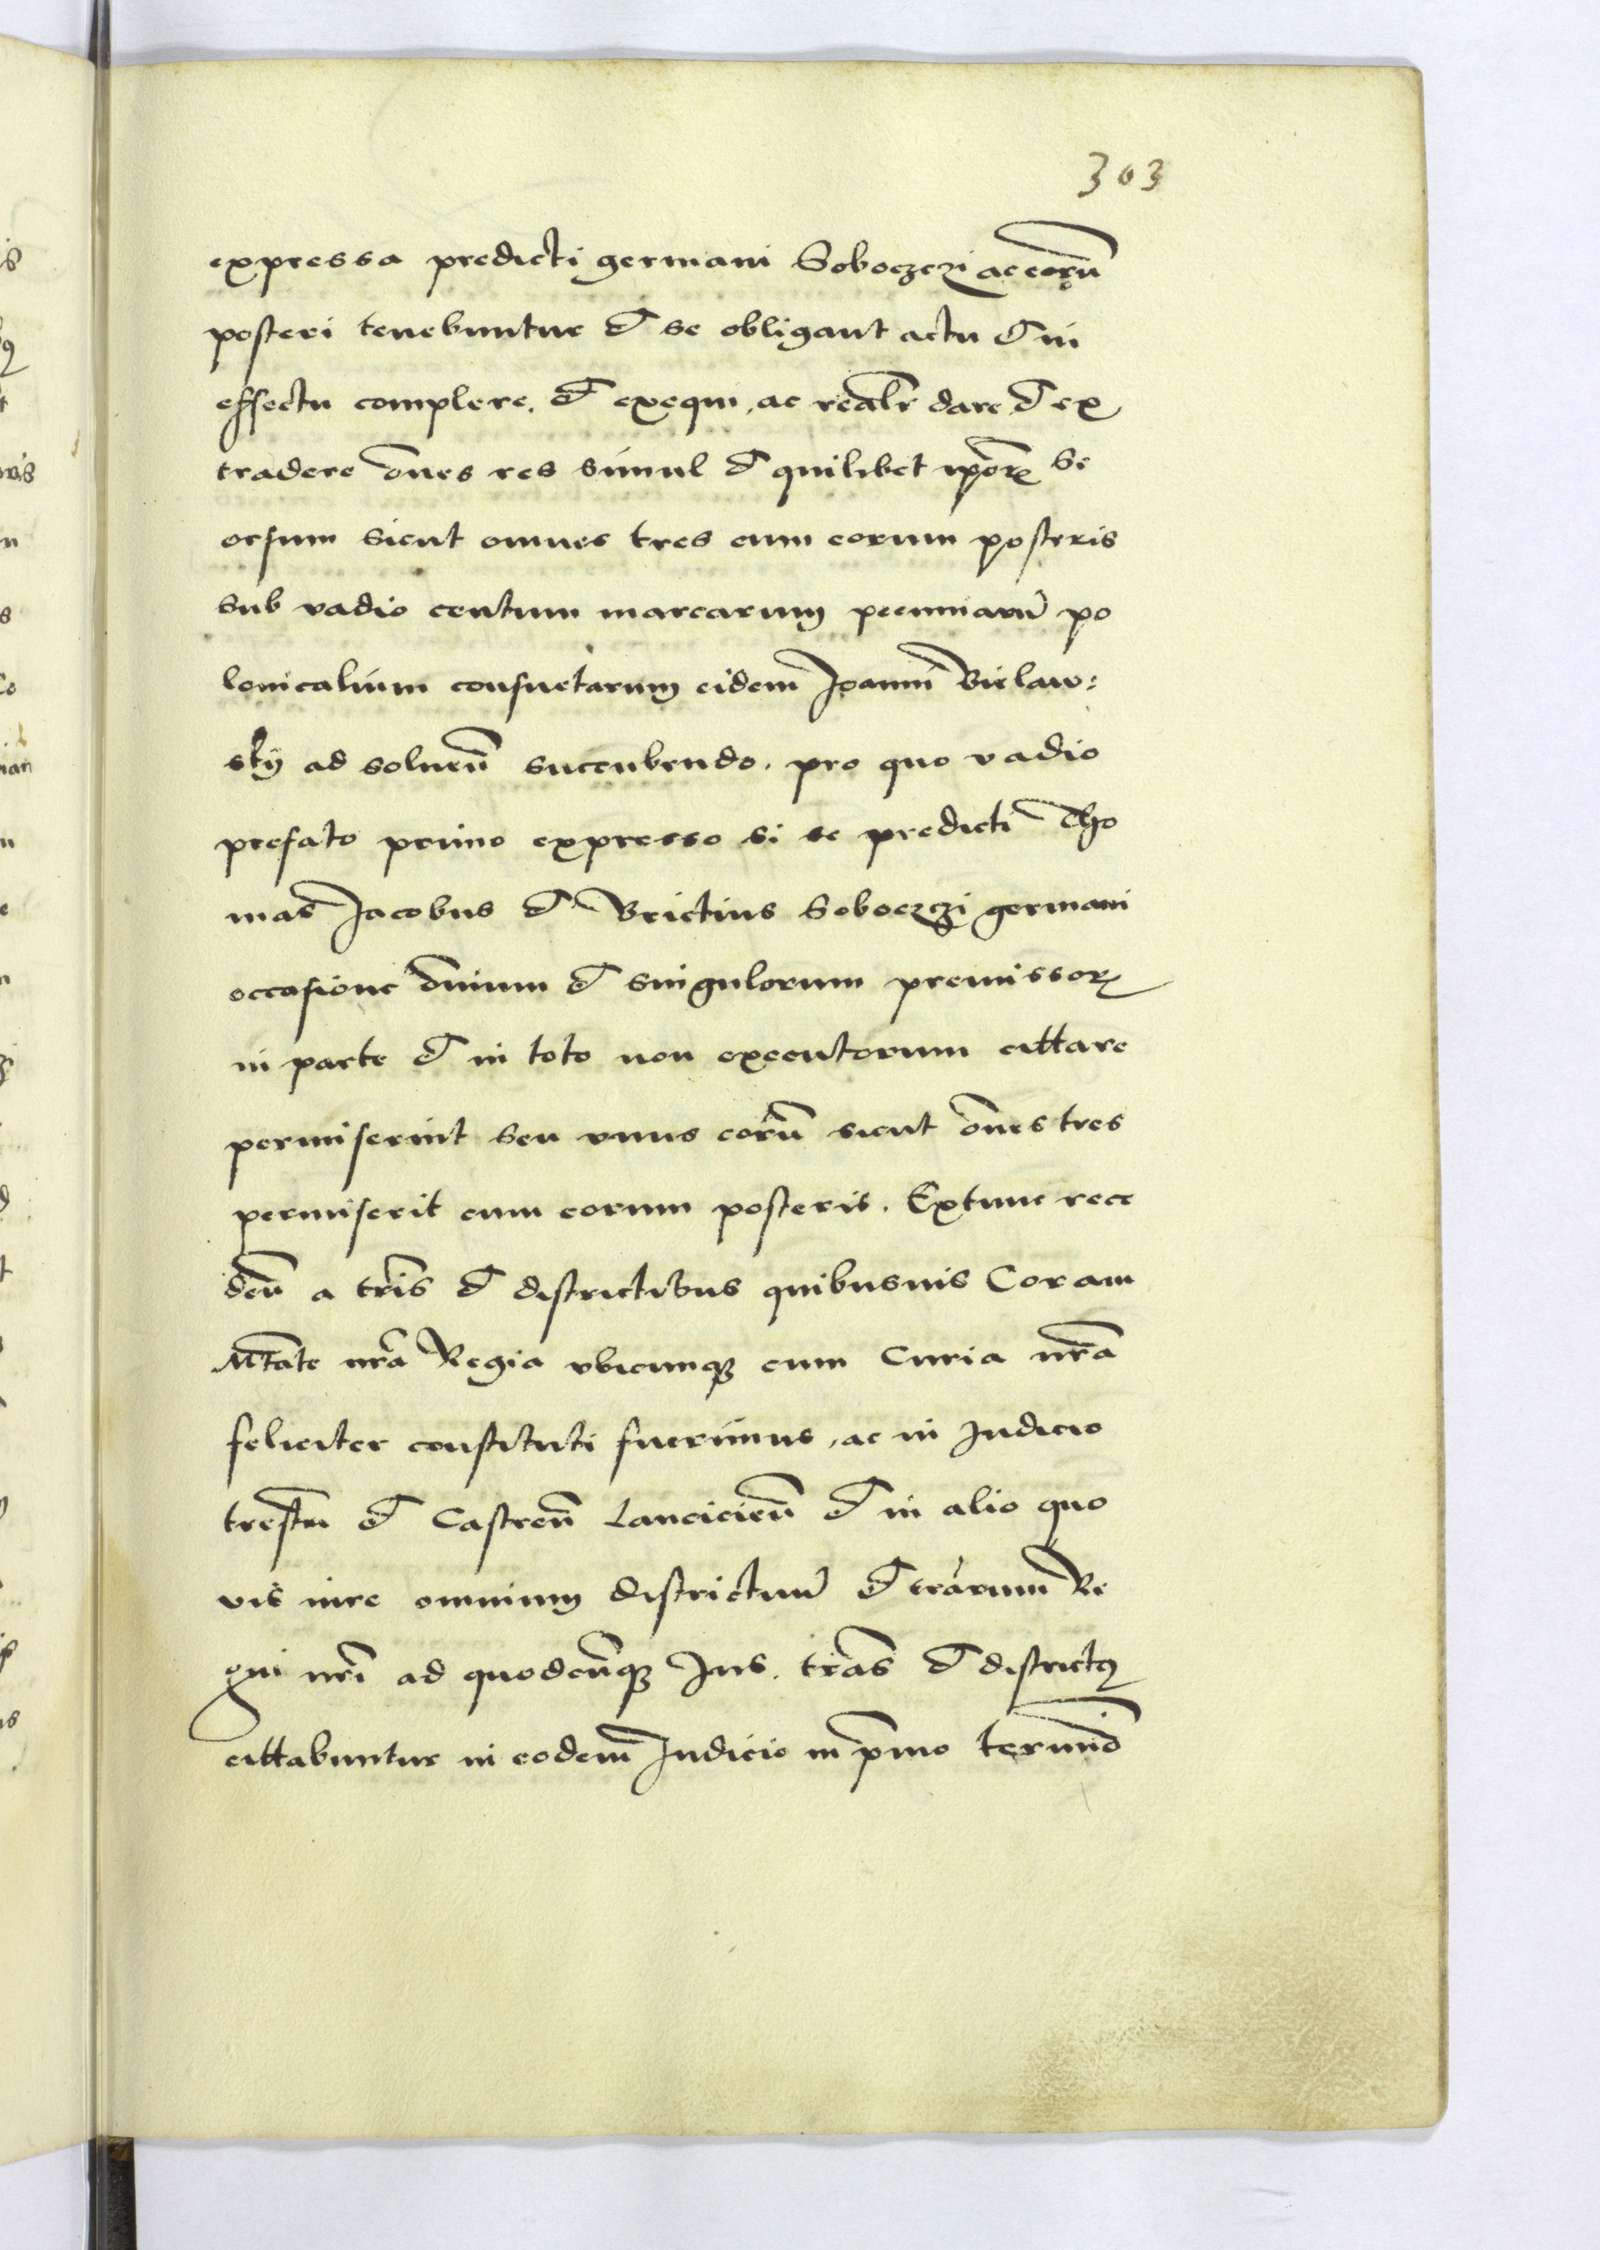 303
expressa predicti germani Soboczczi ac eorū
posteri tenebuntur et se obligant actu et in
effectu complere, et exequi, ac realr̄ dare et ex
tradere om̄es res simul et quilibet ip̄or̄ se
orsum sicut omnes tres cum eorum posteris
sub vadio centum marcarum pecuniarū po
lonicalium consuetarum eidem Joanni Bielaw:
skÿ ad soluen̄ succubendo. pro quo vadio
prefato primo expresso si se predicti Tho
mas Jacobus et Brictius Soboczczi germani
occasione om̄ium et singulorum premissor̄
in parte et in toto non executorum cittare
permiserint seu vnus eorū sicut om̄es tres
permiserit cum eorum posteris. Extunc rece
den̄ a tr̄is et districtibus quibusuis Coram
Mtāte nr̄a Regia vbicunq̄ cum Curia nr̄a
feliciter constituti fuerimus, ac in Judicio
trestri et Castren̄ Lancicien̄ et in alio quo
vis iure omnium districtuū et trārum Re
gni nr̄i ad quodcunq̄ Jus. tr̄as et districtus
cittabuntur in eodem Judicio in p̄mo termino